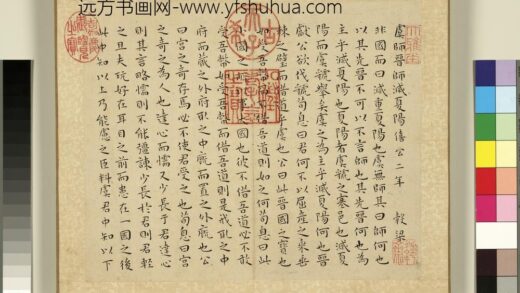 远方书画网-www.yfshuhua.com
虞師晉師滅夏陽僖公二年　穀梁
非國而曰滅重夏陽也虞無師其曰師何也
以其先晉不可以不言師也其先晉何也為
主乎滅夏陽也夏陽者虞虢之塞邑也滅夏
陽而虞虢舉矣虞之為主乎滅夏陽何也晉
獻公欲伐虢荀息曰君何不以屈產之乘垂
棘之璧而借道乎虞也公曰此晉國之寶也
如受吾幣而不借吾道則如之何荀息曰此
小國之所以事大國也彼不借吾道必不敢
受吾幣如受吾幣而借吾道則是我取之中
府而藏之外府取之中廄而置之外廄也公
曰宮之奇存焉必不使君受之也荀息曰宮
之奇之為人也達心而懦又少長于君達心
則其言略懦則不能彊諫少長於君則君輕
之且夫玩好在耳目之前而患在一國之後
此中知以上乃能慮之臣料虞君中知以下